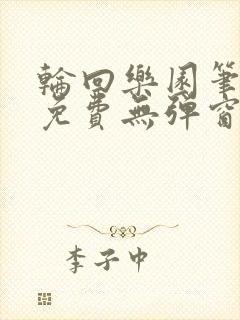 輪回樂園筆
免費無彈窗
李子中